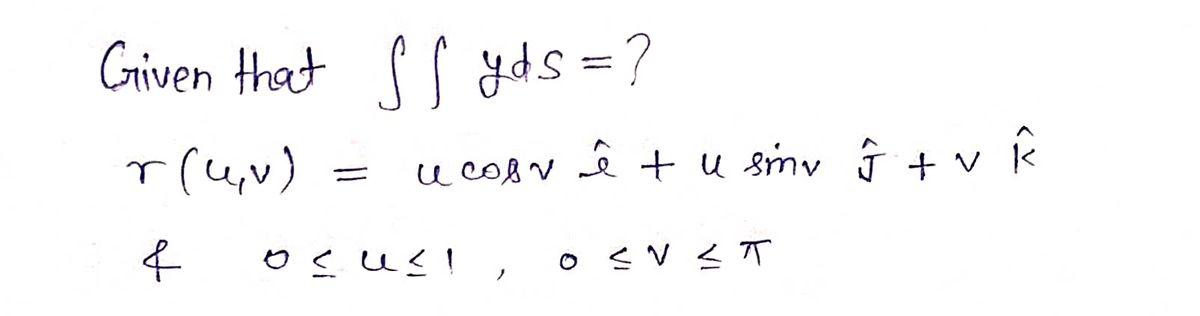 Given that ∫∫ yds = ?
r(u,v) = u cosv î + u sinv ĵ + v k̂
& 0 ≤ u ≤ 1 , 0 ≤ v ≤ π